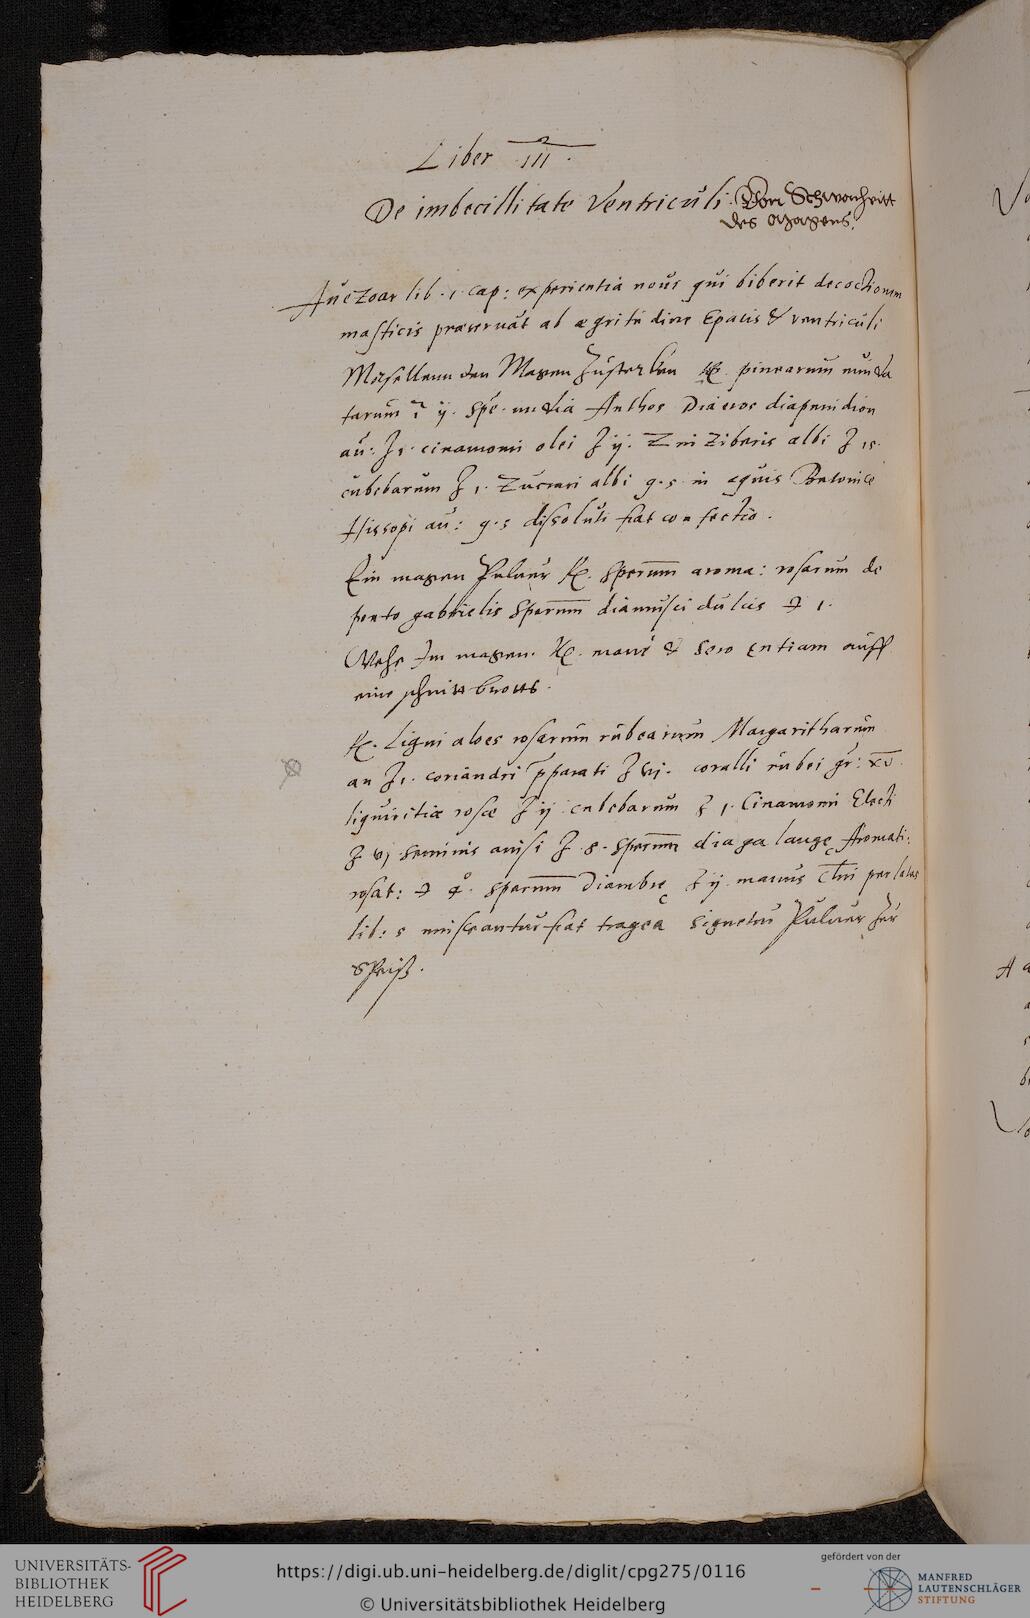 Liber III.
De imbecillitate Ventriculi. Von Schwachheitt
des Magens.
Auezoar lib. 1. cap: experientia novi qui biberit decoctionem
masticis præservat ab ægritudine Epatis & ventriculi
Morsellenn den Magen Zu sterkhen ℞. pinearum munda
tarum ij. Spē. Anthos diapenidion
an: ʒ 1. cinamomi olei ʒ ij. Zinziberis albi ʒ 1s.
cubebarum ʒ 1. Zuccari albi q.s in aquis Betonicæ
Hissopi an: q.s dissoluti fiat confectio.
Ein magen Puluer ℞. Sperum aroma: rosarum de
gabrielis Sperum diamusci dulcis ℈ 1.
Wehe Im magen. ℞. mane & sero auff
eine schnitt brotts.
℞. Ligni aloes rosarum rubearum Margaritharum
an ʒ 1. coriandri pparati ʒ vj. coralli rubei gr: xv.
liquiritiæ rosæ ʒ ij cubebarum ʒ 1. Cinamomi Electi
ʒ vj seminis anisi ʒ s. sperum diagalangę Aromati:
rosat: ℈ 4. sperum diambrę ʒ ij manus perlatas
lib: s misceantur fiat tragea Signetur Puluer Zur
Speiß.
A
UNIVERSITÄTS-
BIBLIOTHEK
HEIDELBERG
https://digi.ub.uni-heidelberg.de/diglit/cpg275/0116
© Universitätsbibliothek Heidelberg
gefördert von der
MANFRED
LAUTENSCHLÄGER
STIFTUNG